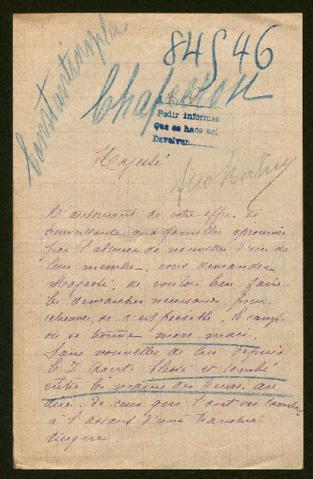 84546
Constantinople
Chaperon
Pedir informes
Que se hace así
Devolver
Majesté
M'autorisant de votre offre si
bienveillante, aux familles éprouvées
par l'absence de nouvelles d'un de
leur membre, vous demander
Majesté, de vouloir bien faire
les démarches nécessaires, pour
si c'est possible, le camp
où se trouve mon mari.
Sans nouvelles de lui depuis
le 7 Août. Blessé et tombé
entre les mains des Turcs, au
dire, de ceux qui l'ont vu tomber
à l'assaut d'une tranchée
turque.